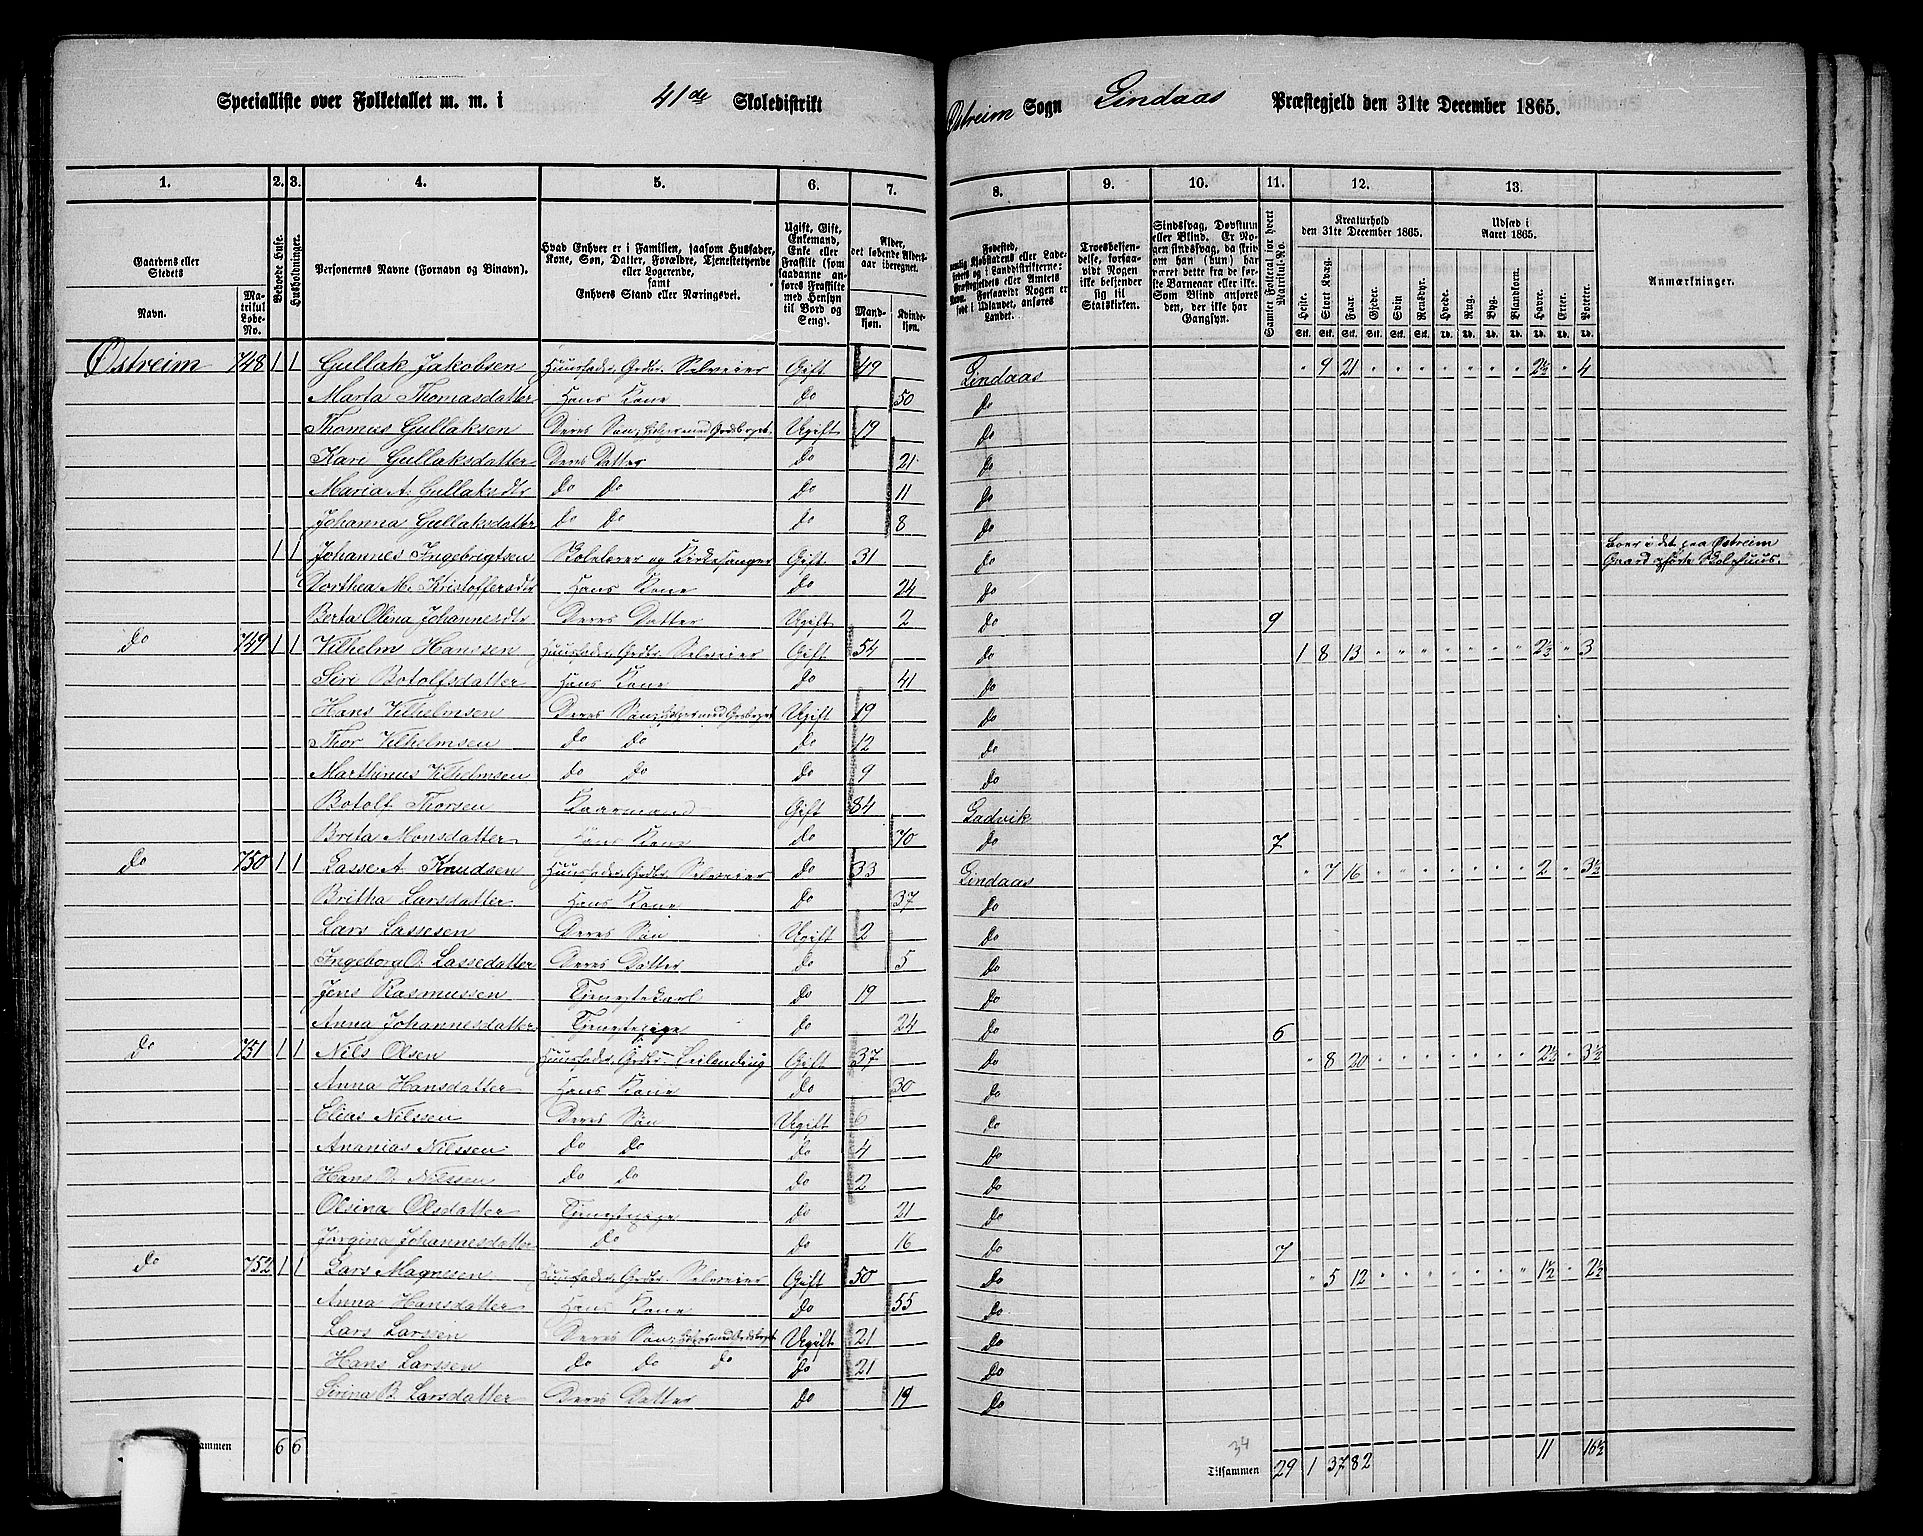 Specialliste over Folketallet m. m. i 41de Skoledistrikt Østreim Sogn Lindaas Præstegjeld den 31te December 1865.
1. 2. 3. 4. 5. 6. 7. 8. 9. 10. 11. 12. 13.
Gaardens eller Stedets
Navn.
Matrikul Løbe-No.
Beboede Huse.
Husholdninger.
Personernes Navne (Fornavn og Tilnavn).
Hvad Enhver er i Familien, saasom Husfader, Kone, Søn, Datter, Forældre, Tjenestetyende eller Logerende, samt Enhvers Stand eller Næringsvei.
Ugift, Gift, Enkemand, Enke eller Fraskilt (som saadanne anføres Fraskilte med Hensyn til Bord og Seng).
Alder, det løbende Alders-aar iberegnet.
Mandkjøn.
Kvindekjøn.
Troesbekjendelse, forsaavidt Nogen ikke bekjender sig til Statskirken.
Sindssvag, Døvstum eller Blind.
Samlet Folketal for hvert Matrikul-No.
Kreaturhold den 31te December 1865.
Udsæd i Aaret 1865.
Heste. Stort Kvæg. Faar. Gjeder. Svin. Rensdyr. Hvede. Rug. Byg. Blandkorn. Havre. Erter. Poteter.
Anmærkninger.
Østreim 748 1 1 Gullak Jakobsen Huusfader, Grdbr. Selveier Gift 49 Lindaas " 9 21 " " " " " " " 2½ " 4
Marta Thomasdatter Hans Kone do 50 do
Thomas Gullaksen Deres Søn, hjelper med Grdsbrget. Ugift 19 do
Kari Gullaksdatter Deres Datter do 21 do
Maria A. Gullaksdtr do do do 11 do
Johanna Gullaksdatter do do do 8 do
1 1 Johannes Ingebrigtsen Skolelærer og Kirkesanger Gift 31 do Boer i det paa Østreim Gaard opførte Skolehuus.
Dorthea M. Kristoffersdtr Hans Kone do 24 do
Berta Olina Johannesdtr Deres Datter Ugift 2 do 9
do 749 1 1 Vilhelm Hanssen Huusfader, Grdbr. Selveier Gift 54 do 1 8 13 " " " " " " " 2½ " 3
Siri Botolfsdatter Hans Kone do 41 do
Hans Vilhelmsen Deres Søn, hjelper med Grdsbrget Ugift 19 do
Thor Vilhelmsen do do do 12 do
Marthinus Vilhelmsen do do do 9 do
Botolf Thorsen Kaarmand Gift 84 Ladvik
Brita Monsdatter Hans Kone do 70 do 7
do 750 1 1 Lasse A. Knudsen Huusfader, Grdbr. Selveier do 33 Lindaas " 7 16 " " " " " " " 2 " 3½
Britha Larsdatter Hans Kone do 37 do
Lars Lassesen Deres Søn Ugift 2 do
Ingeborg O. Lassedatter Deres Datter do 5 do
Jens Rasmussen Tjenestekarl do 19 do
Anna Johannesdatter Tjenestepige do 24 do 6
do 751 1 1 Nils Olsen Huusfader, Grdbr. Leilending Gift 37 do " 8 20 " " " " " " " 2½ " 3½
Anna Hansdatter Hans Kone do 30 do
Elias Nilssen Deres Søn Ugift 6 do
Ananias Nilssen do do do 4 do
Hans O. Nilssen do do do 2 do
Olsina Olsdatter Tjenestepige do 21 do
Jørgina Johannesdatter do do 16 do 7
do 752 1 1 Lars Magnesen Huusfader, Grdbr. Selveier Gift 50 do " 5 12 " " " " " " " 1½ " 2½
Anna Hansdatter Hans Kone do 55 do
Lars Larssen Deres Søn, hjelper med Grdsbrget Ugift 21 do
Hans Larssen do do do do 21 do
Sirina B. Larsdatter Deres Datter do 19 do
Tilsammen 6 6 34 Tilsammen 29 1 37 82 11 16½